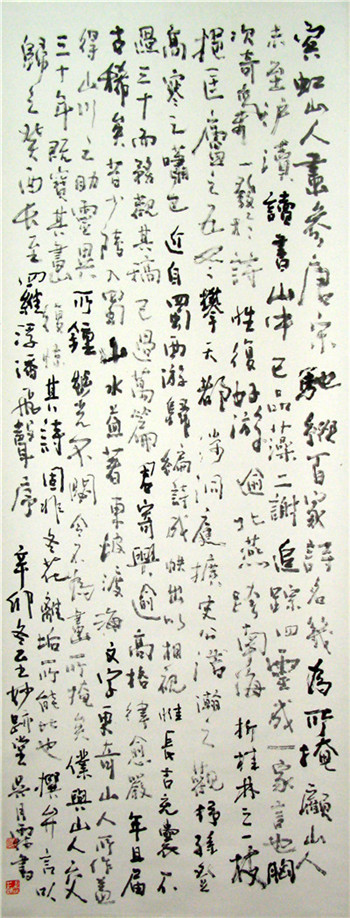 賓虹山人畫參唐宋馳縱百家詩名幾為所掩顧山人
未至沪瀆讀書山中已品藻二謝追踪四靈成一家言也胸
次奇氣一發於詩性復好游逾北燕跨南海折桂林之一枝
攬匡廬之五老攀天都蕩洞庭擴史公浩瀚之觀抒孫登
高寒之嘯也近自蜀西游歸編詩成帙出以相視惟長吉充囊不
過三十而務觀其稿已過萬篇君寄興逾高格律愈嚴年且届
古稀矣昔少陵入蜀山水兼著東坡渡海文字更奇山人所作蓋
得山川之助靈異所鍾光不閟今不為畫所掩矣僕與山人交
三十年既寶其畫復惊其詩固非冬花離垢所能比也撰弁言以
歸之癸酉長至羅浮潘飛聲序
辛卯冬至妙跡堂吴月霖書